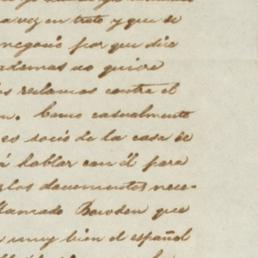 a vez en trato y que se
negoció por que dice
ademas no quiere
reclamos contra el
n. Como casualmente
es socio de la casa de
á hablar con él para
los documentos nece-
llamado Bowden que
muy bien el español